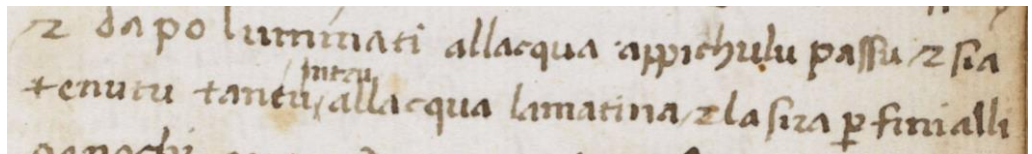 ⁊ dapo lu minati allacqua appichulu passu ⁊ sia
tenutu tantu intru allacqua lamatina / ⁊ la sira ꝑ fini alli